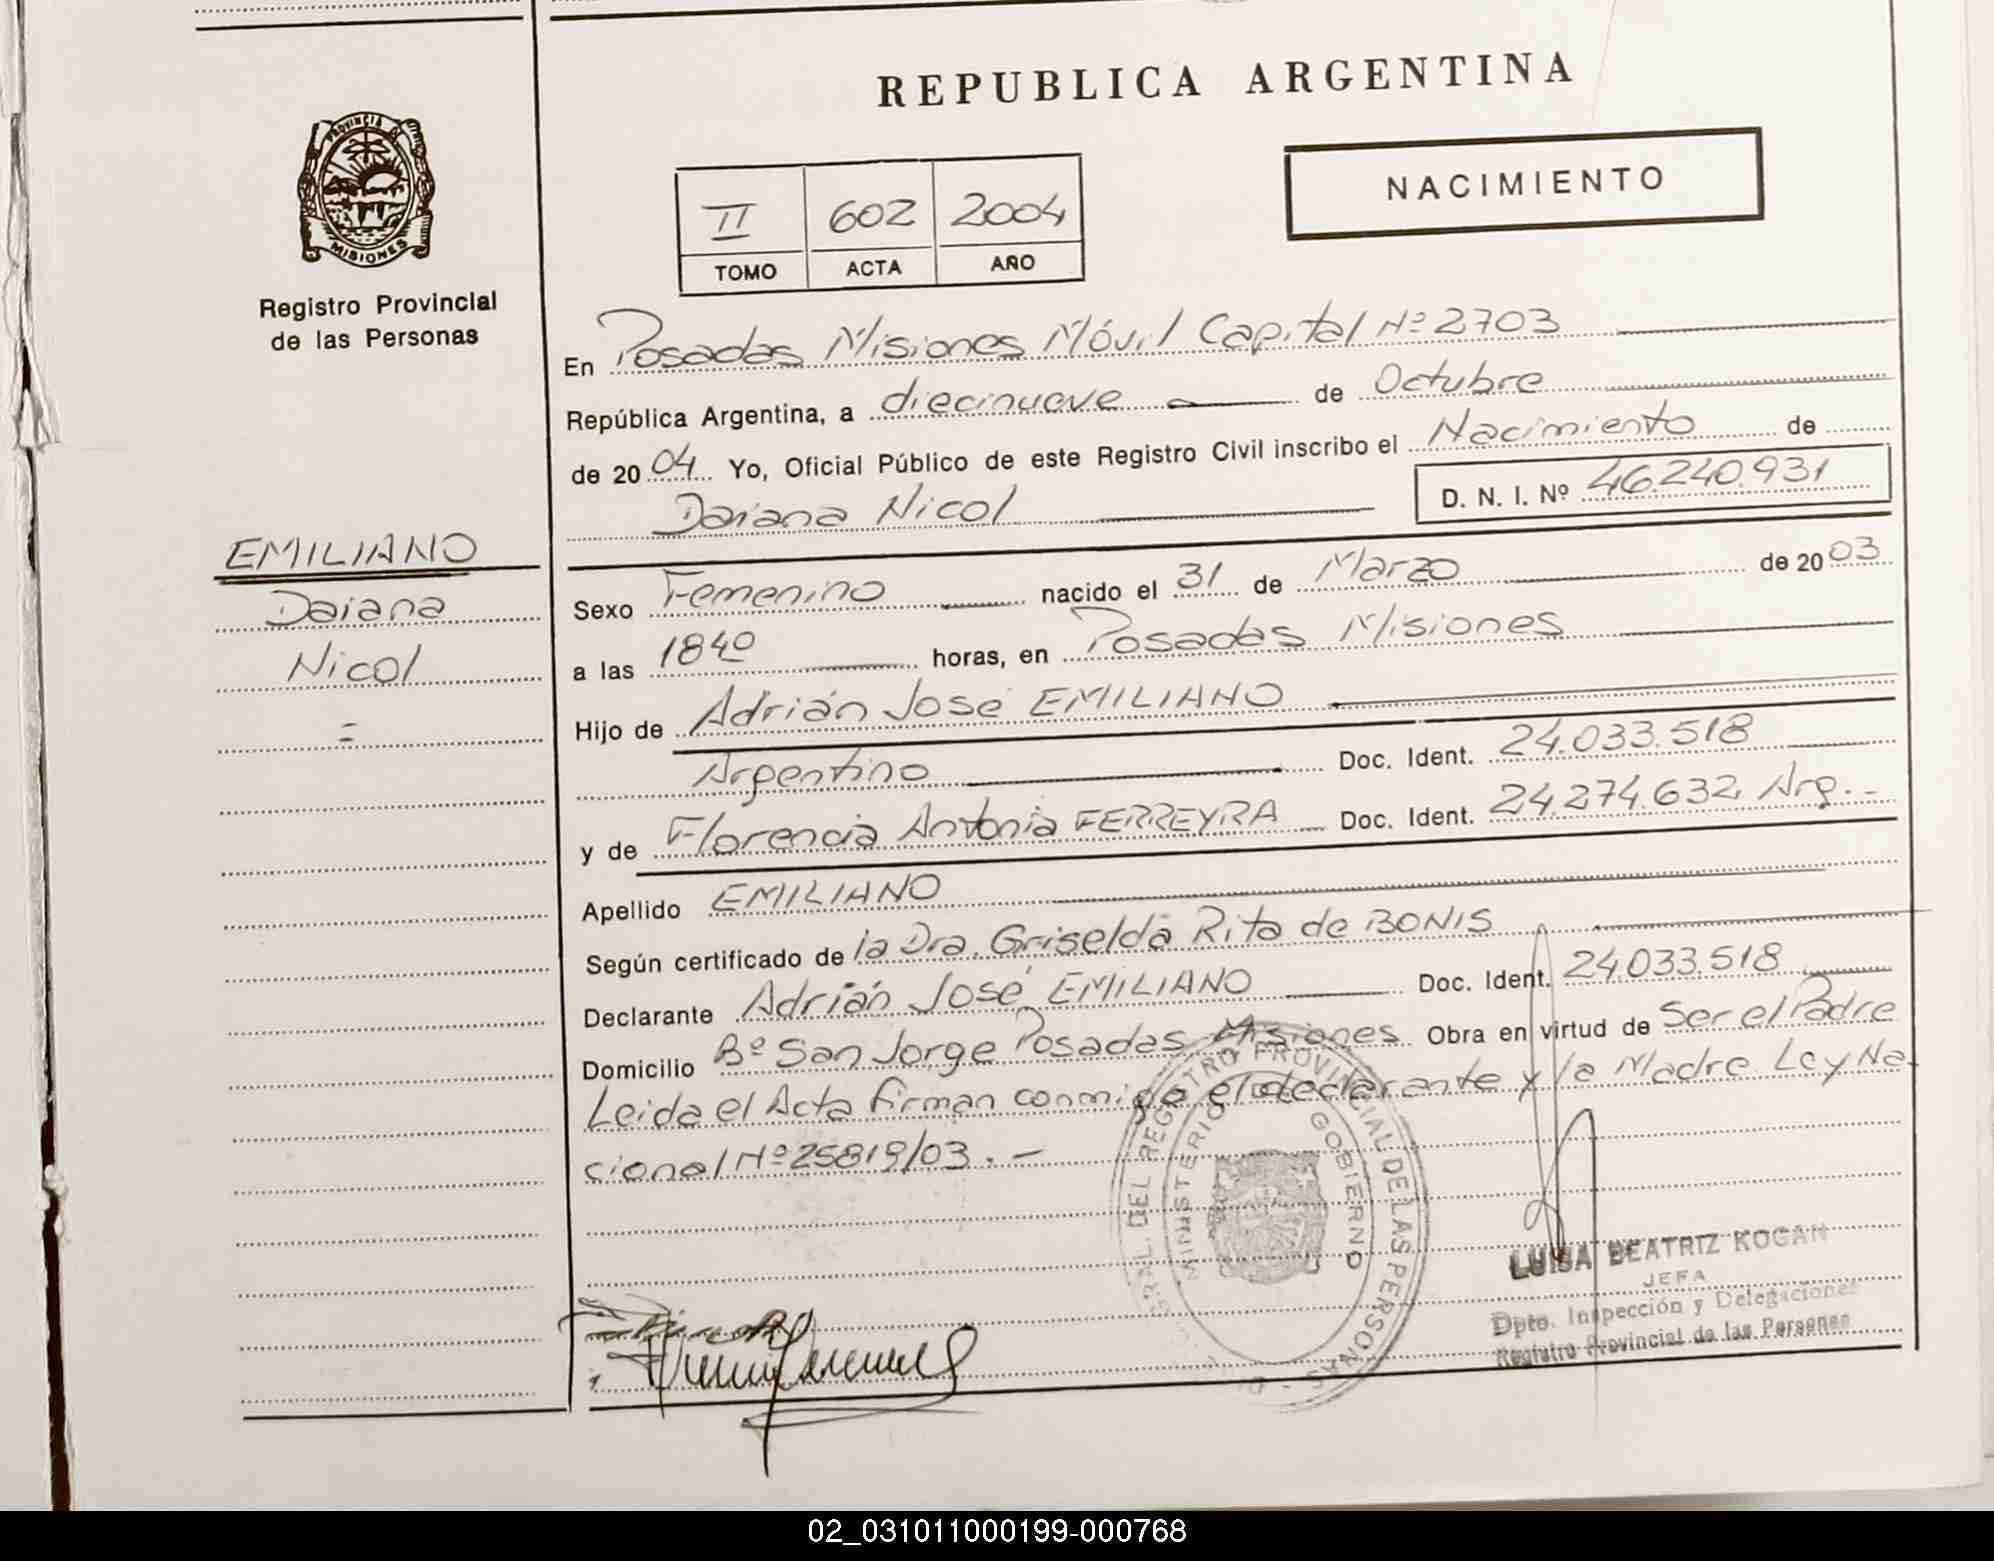 REPUBLICA ARGENTINA
PROVINCIA DE
MISIONES
Registro Provincial
de las Personas
II 602 2004
TOMO ACTA AÑO
NACIMIENTO
En Posadas Misiones Móvil Capital Nº 2703
República Argentina, a diecinueve de Octubre
de 2004 Yo, Oficial Público de este Registro Civil inscribo el Nacimiento de
Daiana Nicol D. N. I. Nº 46.240.931
EMILIANO
Daiana
Nicol
=
Sexo Femenino nacido el 31 de Marzo de 2003
a las 1840 horas, en Posadas Misiones
Hijo de Adrián José EMILIANO
Argentino Doc. Ident. 24.033.518
y de Florencia Antonia FERREYRA Doc. Ident. 24.274.632 Arg.-
Apellido EMILIANO
Según certificado de la Dra. Griselda Rita de BONIS
Declarante Adrián José EMILIANO Doc. Ident. 24.033.518
Domicilio Bº San Jorge Posadas Misiones Obra en virtud de Ser el Padre
Leida el Acta firman conmigo el declarante y la Madre Ley Na-
cional Nº 25819/03.-
DEL REGISTRO PROVINCIAL DE LAS PERSONAS
MINISTERIO GOBIERNO
LUISA BEATRIZ KOGAN
JEFA
Dpto. Inspección y Delegaciones
Registro Provincial de las Personas
02_031011000199-000768